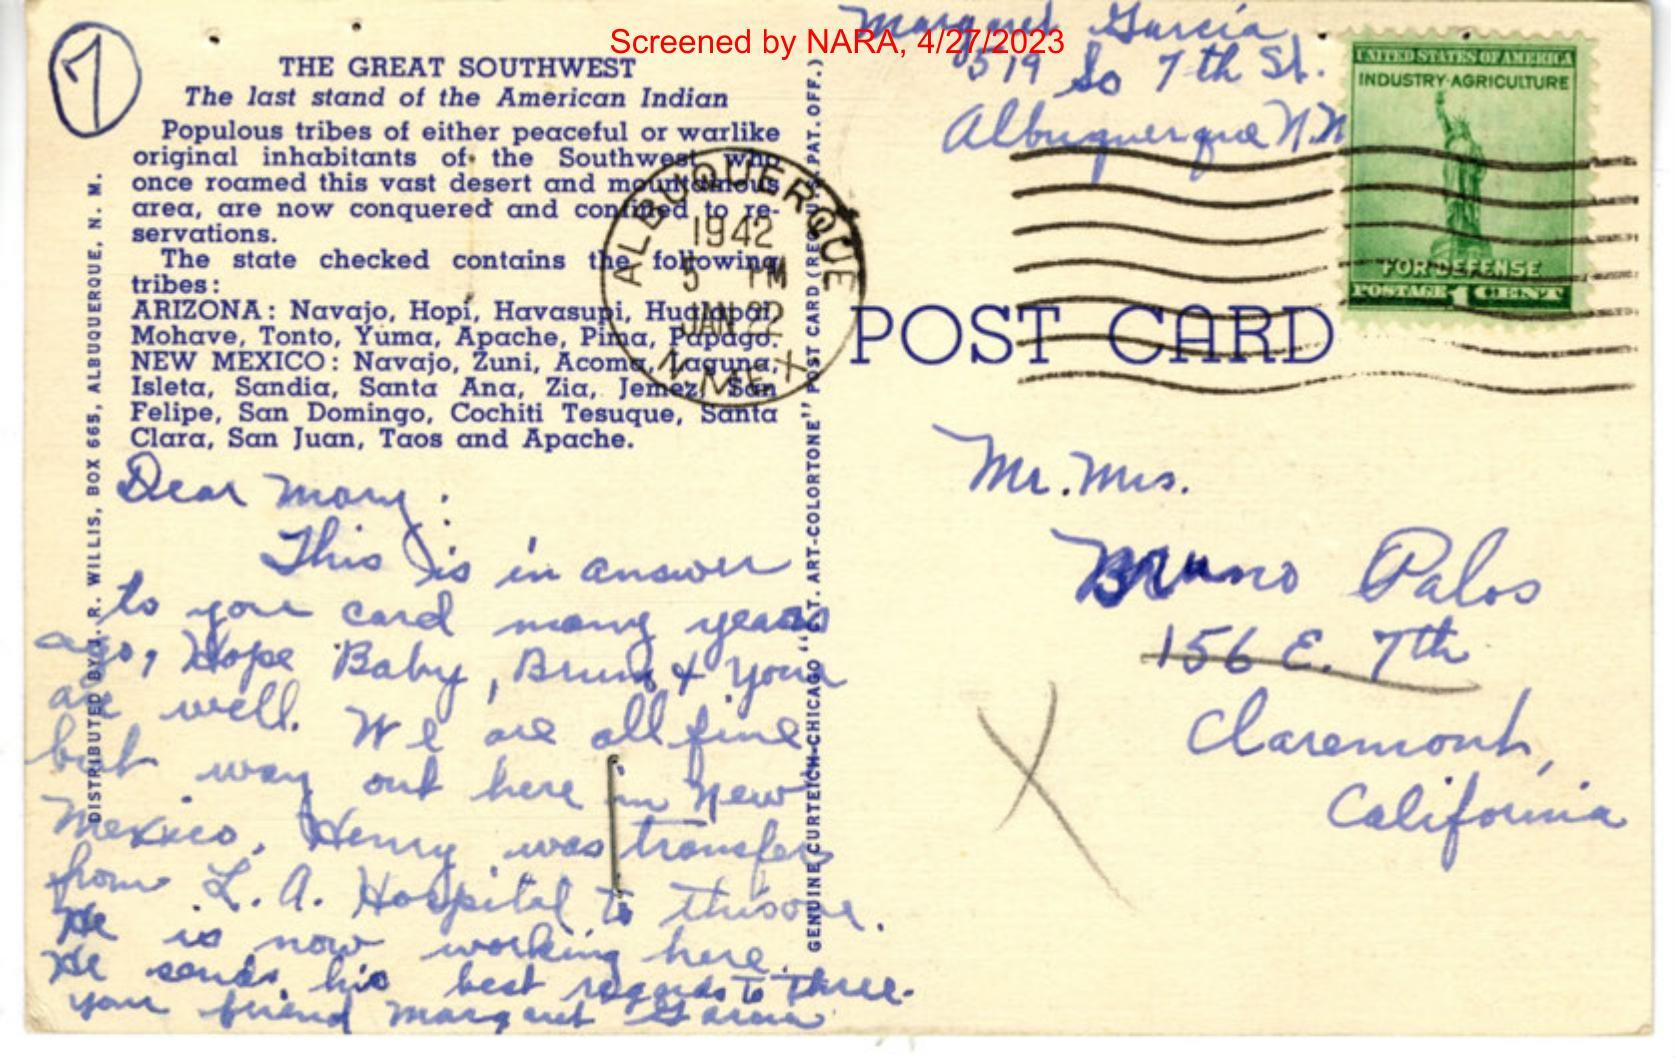 Screened by NARA, 4/27/2023
7
THE GREAT SOUTHWEST
The last stand of the American Indian
Populous tribes of either peaceful or warlike
original inhabitants of the Southwest who
once roamed this vast desert and mountainous
area, are now conquered and confined to re-
servations.
The state checked contains the following
tribes:
ARIZONA: Navajo, Hopi, Havasupi, Hualapai,
Mohave, Tonto, Yuma, Apache, Pima, Papago.
NEW MEXICO: Navajo, Zuni, Acoma, Laguna,
Isleta, Sandia, Santa Ana, Zia, Jemez, San
Felipe, San Domingo, Cochiti Tesuque, Santa
Clara, San Juan, Taos and Apache.
DISTRIBUTED BY J. R. WILLIS, BOX 665, ALBUQUERQUE, N. M.
Dear Mary:
This is in answer
to your card many years
ago, Hope Baby, Bruno & your
are well. We are all fine
but way out here in New
Mexico. Henry was transfers
from L.A. Hospital to this one.
He is now working here.
He sends his best regards to three.
your friend Margaret Garcia
GENUINE CURTEICH-CHICAGO "C.T. ART-COLORTONE" POST CARD (REG. U.S. PAT. OFF.)
ALBUQUERQUE
1942
5 PM
JAN 22
N. MEX
Margaret Garcia
519 So 7th St.
Albuquerque N.M
UNITED STATES OF AMERICA
INDUSTRY·AGRICULTURE
FOR DEFENSE
POSTAGE 1 CENT
POST CARD
Mr. Mrs.
Bruno Palos
156 E. 7th
Claremont,
California